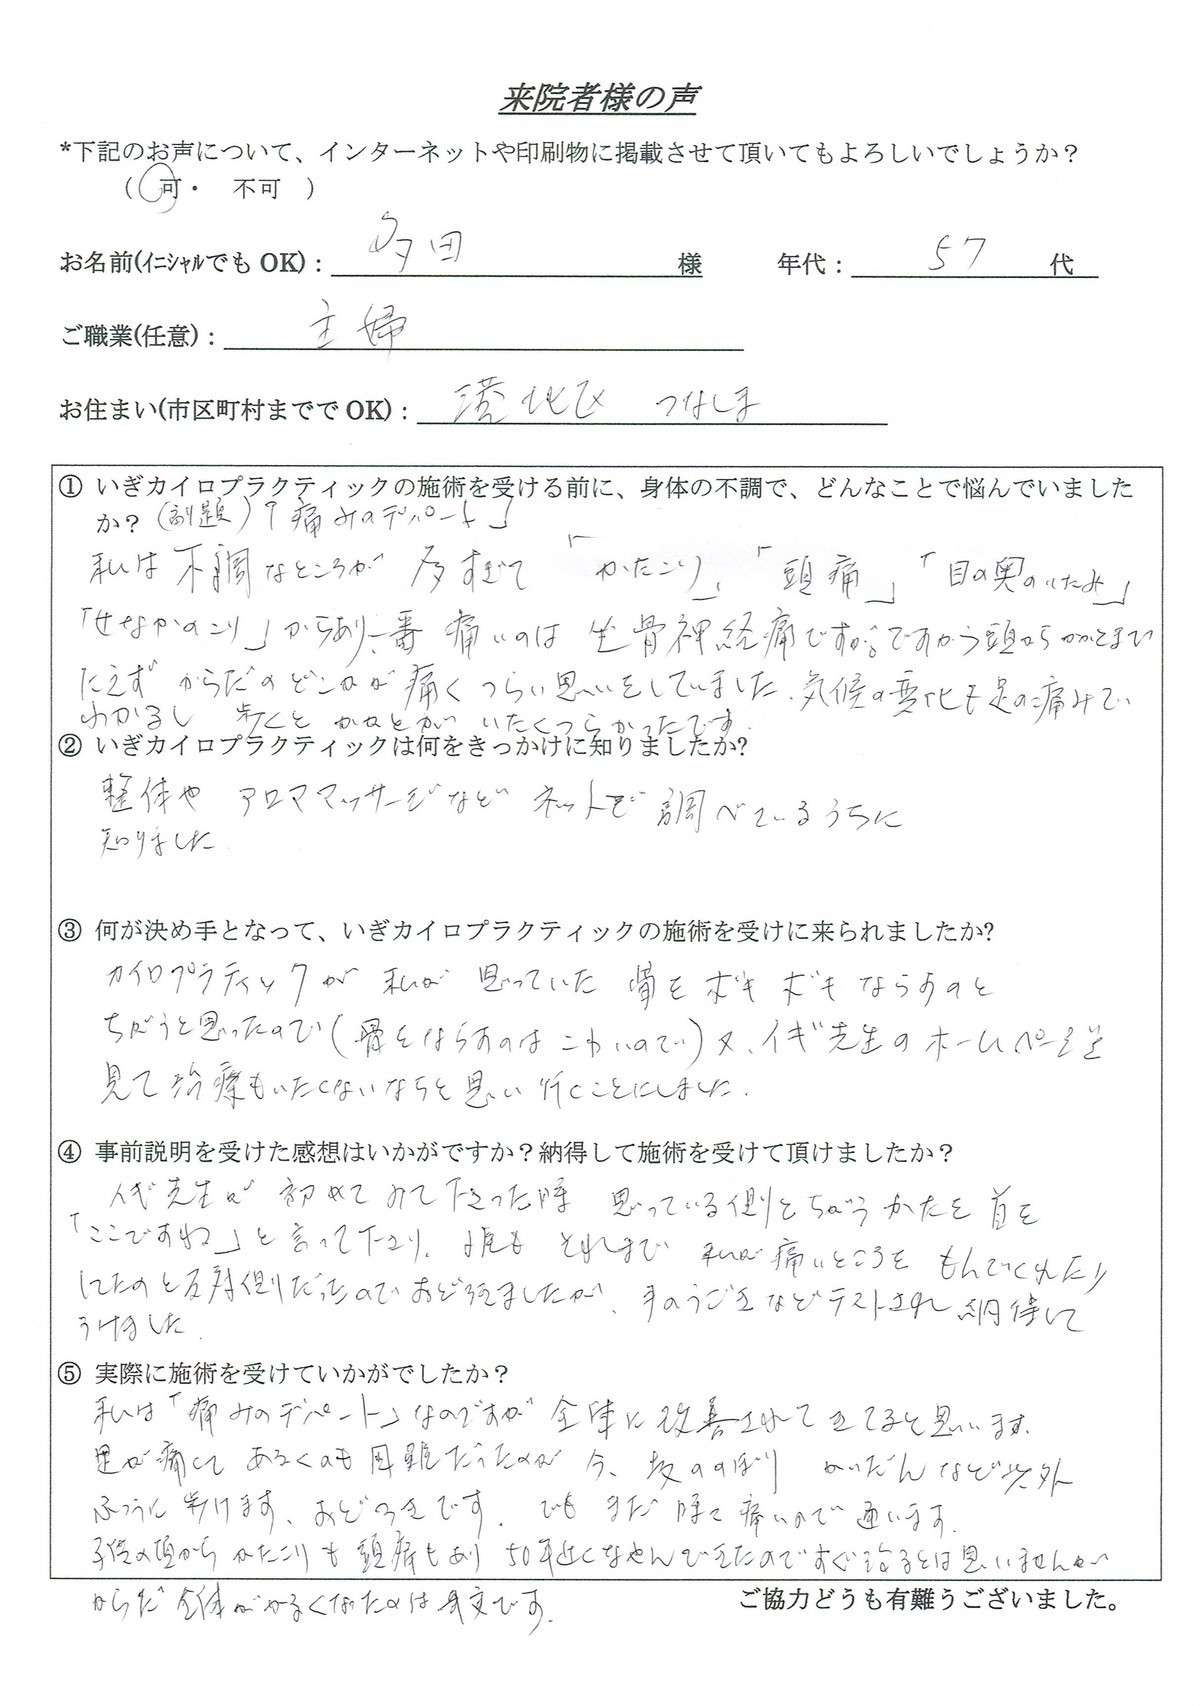 来院者様の声
*下記のお声について、インターネットや印刷物に掲載させて頂いてもよろしいでしょうか？
( 可・ 不可 )
お名前(イニシャルでもOK)： 多田 様 年代： 57 代
ご職業(任意)： 主婦
お住まい(市区町村まででOK)： 港北区 つなしま
① いぎカイロプラクティックの施術を受ける前に、身体の不調で、どんなことで悩んでいました
か？(副題)「痛みのデパート」
私は不調なところが多すぎて「かたこり」、「頭痛」「目の奥のいたみ」
「せなかのこり」からあり、一番痛いのは坐骨神経痛ですが。ですから頭からかかとまで
たえずからだのどこかが痛くつらい思いをしていました。気候の変化も足の痛みで
わかるし 歩くと かかとが いたくつらかったです。
② いぎカイロプラクティックは何をきっかけに知りましたか?
整体や アロママッサージなど ネットで調べているうちに
知りました
③ 何が決め手となって、いぎカイロプラクティックの施術を受けに来られましたか?
カイロプラティックが 私が 思っていた 骨をボキボキならすのと
ちがうと思ったので(骨をならすのはこわいので)又、イギ先生のホームページを
見て治療もいたくないならと思い行くことにしました。
④ 事前説明を受けた感想はいかがですか？納得して施術を受けて頂けましたか？
イギ先生が 初めてみて下さった時 思っている側とちがうかたを首を
「ここですね」と言って下さり、誰も それまで 私が痛いところを もんでくれたり
してたのと反対側だったのでおどろきましたが、手のうごきなどテストされ納得して
うけました。
⑤ 実際に施術を受けていかがでしたか？
私は「痛みのデパート」なのですが 全体に改善されてきてると思います。
足が痛くて あるくのも困難だったのが 今、坂ののぼり かいだんなど以外
ふつうに歩けます、おどろきです。でも まだ 時々痛いので 通います。
子供の頃から かたこりも頭痛もあり 50年近くなやんできたのですぐ治るとは思いませんが
からだ全体がかるくなったのは 事実です。
ご協力どうも有難うございました。